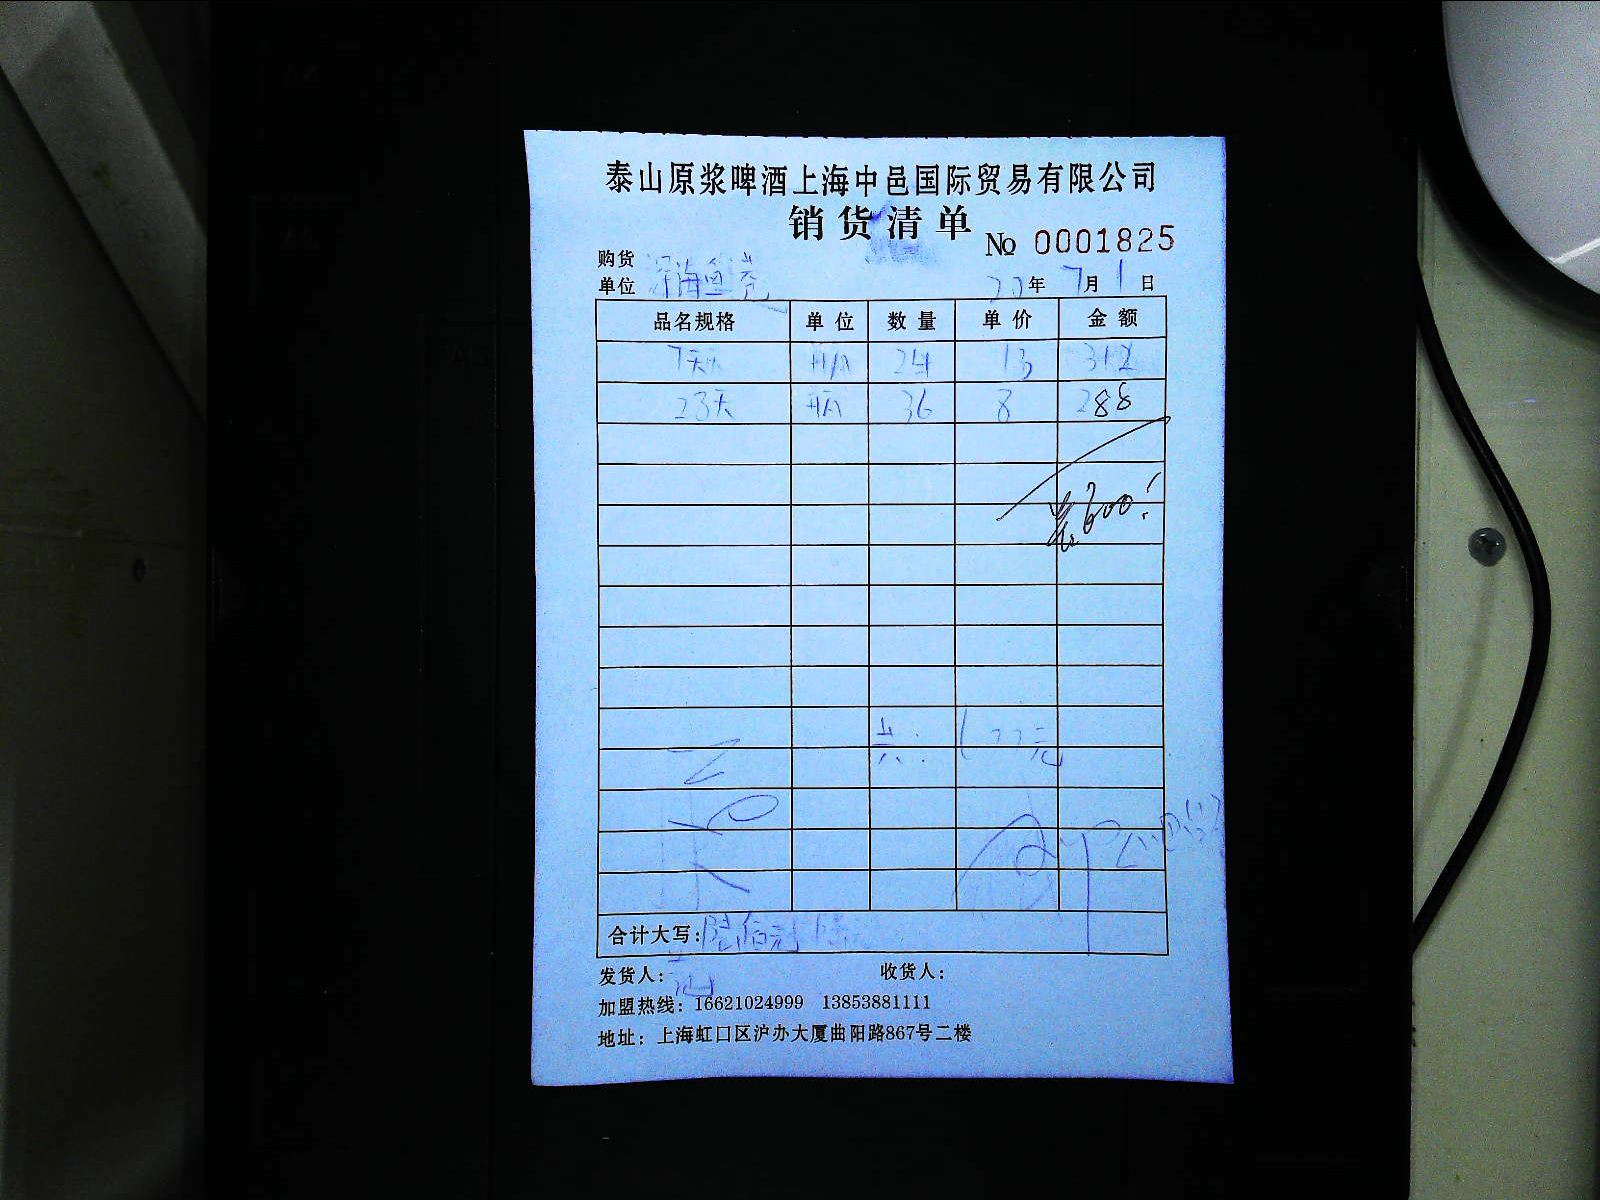 泰山原浆啤酒上海中邑国际贸易有限公司
销货清单
No 0001825
购货单位 深海鱼
年 7月1日
品名规格 单位 数量 单价 金额
7天 瓶 24 13 312
23天 瓶 36 8 288
600!
共: 元
合计大写: 陆佰元
发货人: 收货人:
加盟热线: 16621024999 13853881111
地址: 上海虹口区沪办大厦曲阳路867号二楼